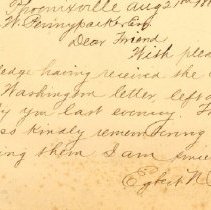 Phoenixville Aug 21st 18
W. Pennypacker Esq
Dear Friend
With plea
ledge having receive the
Washington letter, left
by you last evening. F
ss kindly remembering
ing them I am since
Egbert N.